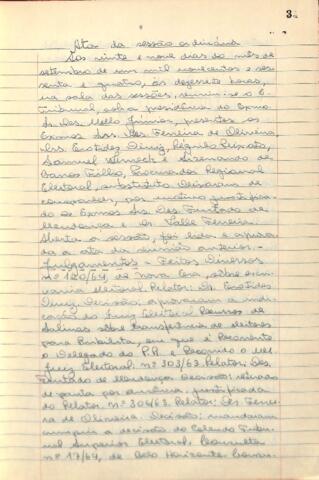 3
Ata da sessão ordinária
Aos vinte e nove dias do mês de
setembro de um mil novecentos e ses-
senta e quatro, às dezessete horas,
na sala das sessões, reuniu-se o
Tribunal, sob a presidência do Exmo.
Sr. Des. Mello Júnior, presentes os
Exmos. Srs. Des. Ferreira de Oliveira,
Drs. Eurotides Diniz, Régulo Peixoto,
Samuel Werneck e
Barros Filho, Procurador Regional
Eleitoral, substituto. Deixaram de
comparecer, por motivo justifica-
do os Exmos. Srs. Des. Furtado de
Mendonça e Dr. Valle Ferreira.
Aberta a sessão, foi lida e aprova-
da a ata da reunião anterior. -
Julgamentos - Feitos Diversos
nº 120/64, de Nova Era, sobre escri-
vania eleitoral. Relator: Dr.
Diniz. Decisão: aprovaram a indi-
cação do Juiz Eleitoral. Recurso de
Salinas sobre transferência de eleitores
para Rubelita, em que é Recorrente
o Delegado do P.R. e Recorrido o MM.
Juiz Eleitoral. nº 303/63. Relator: Des.
Furtado de Mendonça. Decisão: retirado
de pauta por ausência, justificada
do Relator. nº 304/63. Relator: Des. Ferrei-
ra de Oliveira. Decisão: mandaram
cumprir a decisão do Colendo Tribu-
nal Superior Eleitoral. Consulta
nº 17/64, de Belo Horizonte,